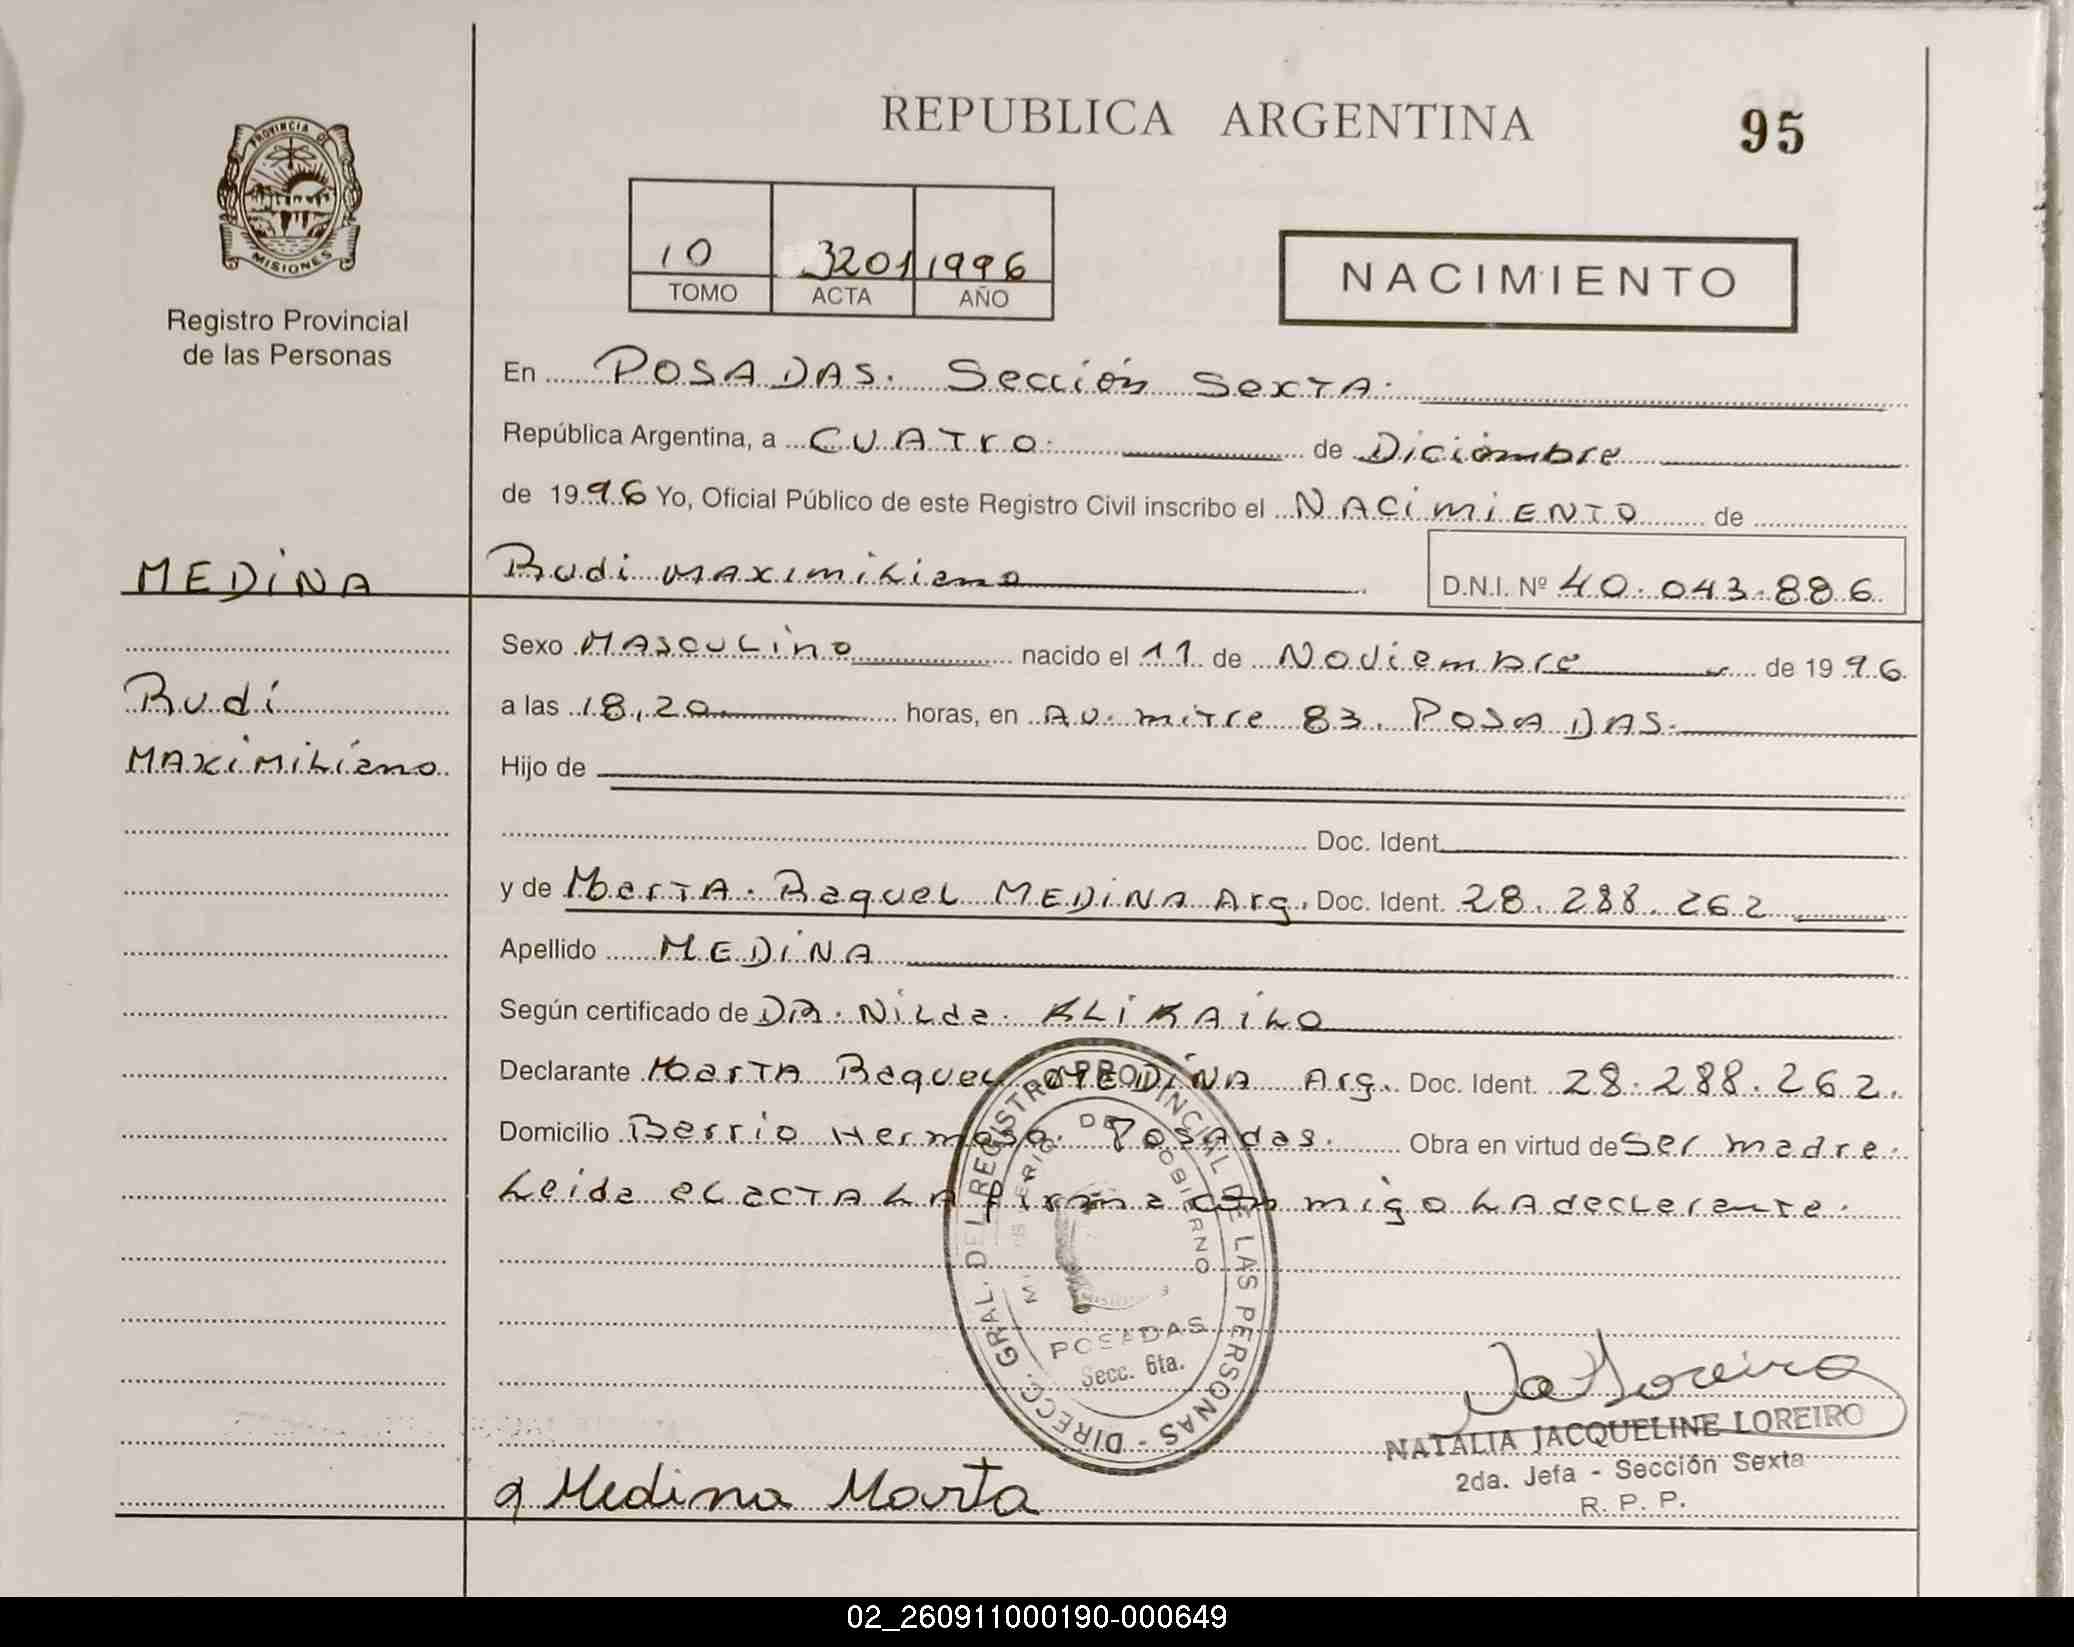 REPUBLICA ARGENTINA
95
PROVINCIA DE
MISIONES
Registro Provincial
de las Personas
10 3201 1996
TOMO ACTA AÑO
NACIMIENTO
En POSADAS. Sección Sexta.
República Argentina, a CUATRO. de Diciembre
de 1996 Yo, Oficial Público de este Registro Civil inscribo el NACIMIENTO de
MEDINA
Rudi Maximiliano D.N.I. Nº 40.043.886
Sexo MASCULINO nacido el 11 de Noviembre de 1996
Rudi
Maximiliano
a las 18,20 horas, en Av. mitre 83. POSADAS.
Hijo de
Doc. Ident.
y de Marta Raquel MEDINA Arg. Doc. Ident. 28.288.262
Apellido MEDINA
Según certificado de DRA. Nilda KLIKAILO
Declarante Marta Raquel MEDINA Arg. Doc. Ident. 28.288.262.
Domicilio Barrio Hermoso. Posadas. Obra en virtud de Ser madre.
Leida el acta la firma con migo la declarante.
DIRECC. GRAL. DEL REGISTRO PROVINCIAL DE LAS PERSONAS -
MINISTERIO DE GOBIERNO
MISIONES
POSADAS
Secc. 6ta.
NATALIA JACQUELINE LOREIRO
2da. Jefa - Sección Sexta
R. P. P.
Medina Marta
02_260911000190-000649